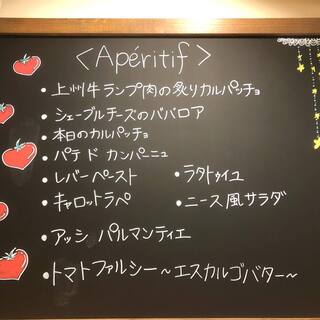 <Apéritif>
・上州牛ランプ肉の炙りカルパッチョ
・シェーブルチーズのババロア
・本日のカルパッチョ
・パテ ド カンパーニュ
・レバーペースト ・ラタトゥイユ
・キャロットラペ ・ニース風サラダ
・アッシ パルマンティエ
・トマトファルシー～エスカルゴバター～